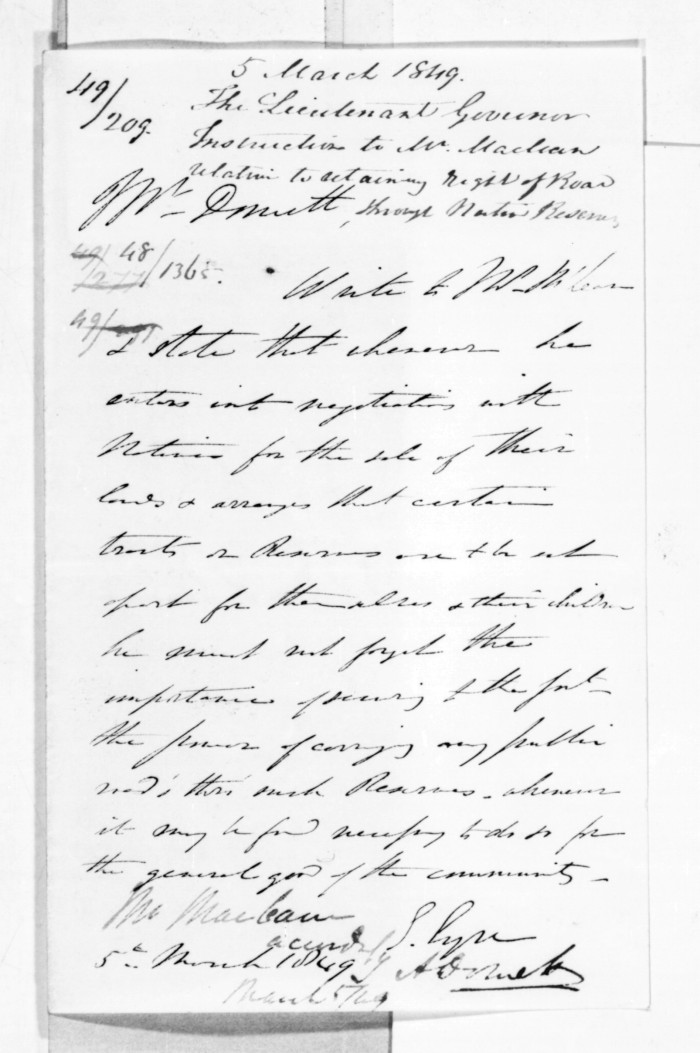 5 March 1849.
49/209.
The Lieutenant Governor
Instruction to Mr. Maclean
relative to retaining right of Road
through Native Reserves
Mr. Domett,
48/1365.
49/
Write to Mr. McLean
& state that whenever he
enters into negotiation with
Natives for the sale of their
lands & arranges that certain
tracts or Reserves are to be set
apart for themselves & their children
he must not forget the
importance of securing to the Govt
the power of carrying any public
road's thro' such Reserves - whenever
it may be found necessary to do so for
the general good of the community -
E. Eyre
5th March 1849
Mr Maclean
accordingly
A Domett
March 5/49